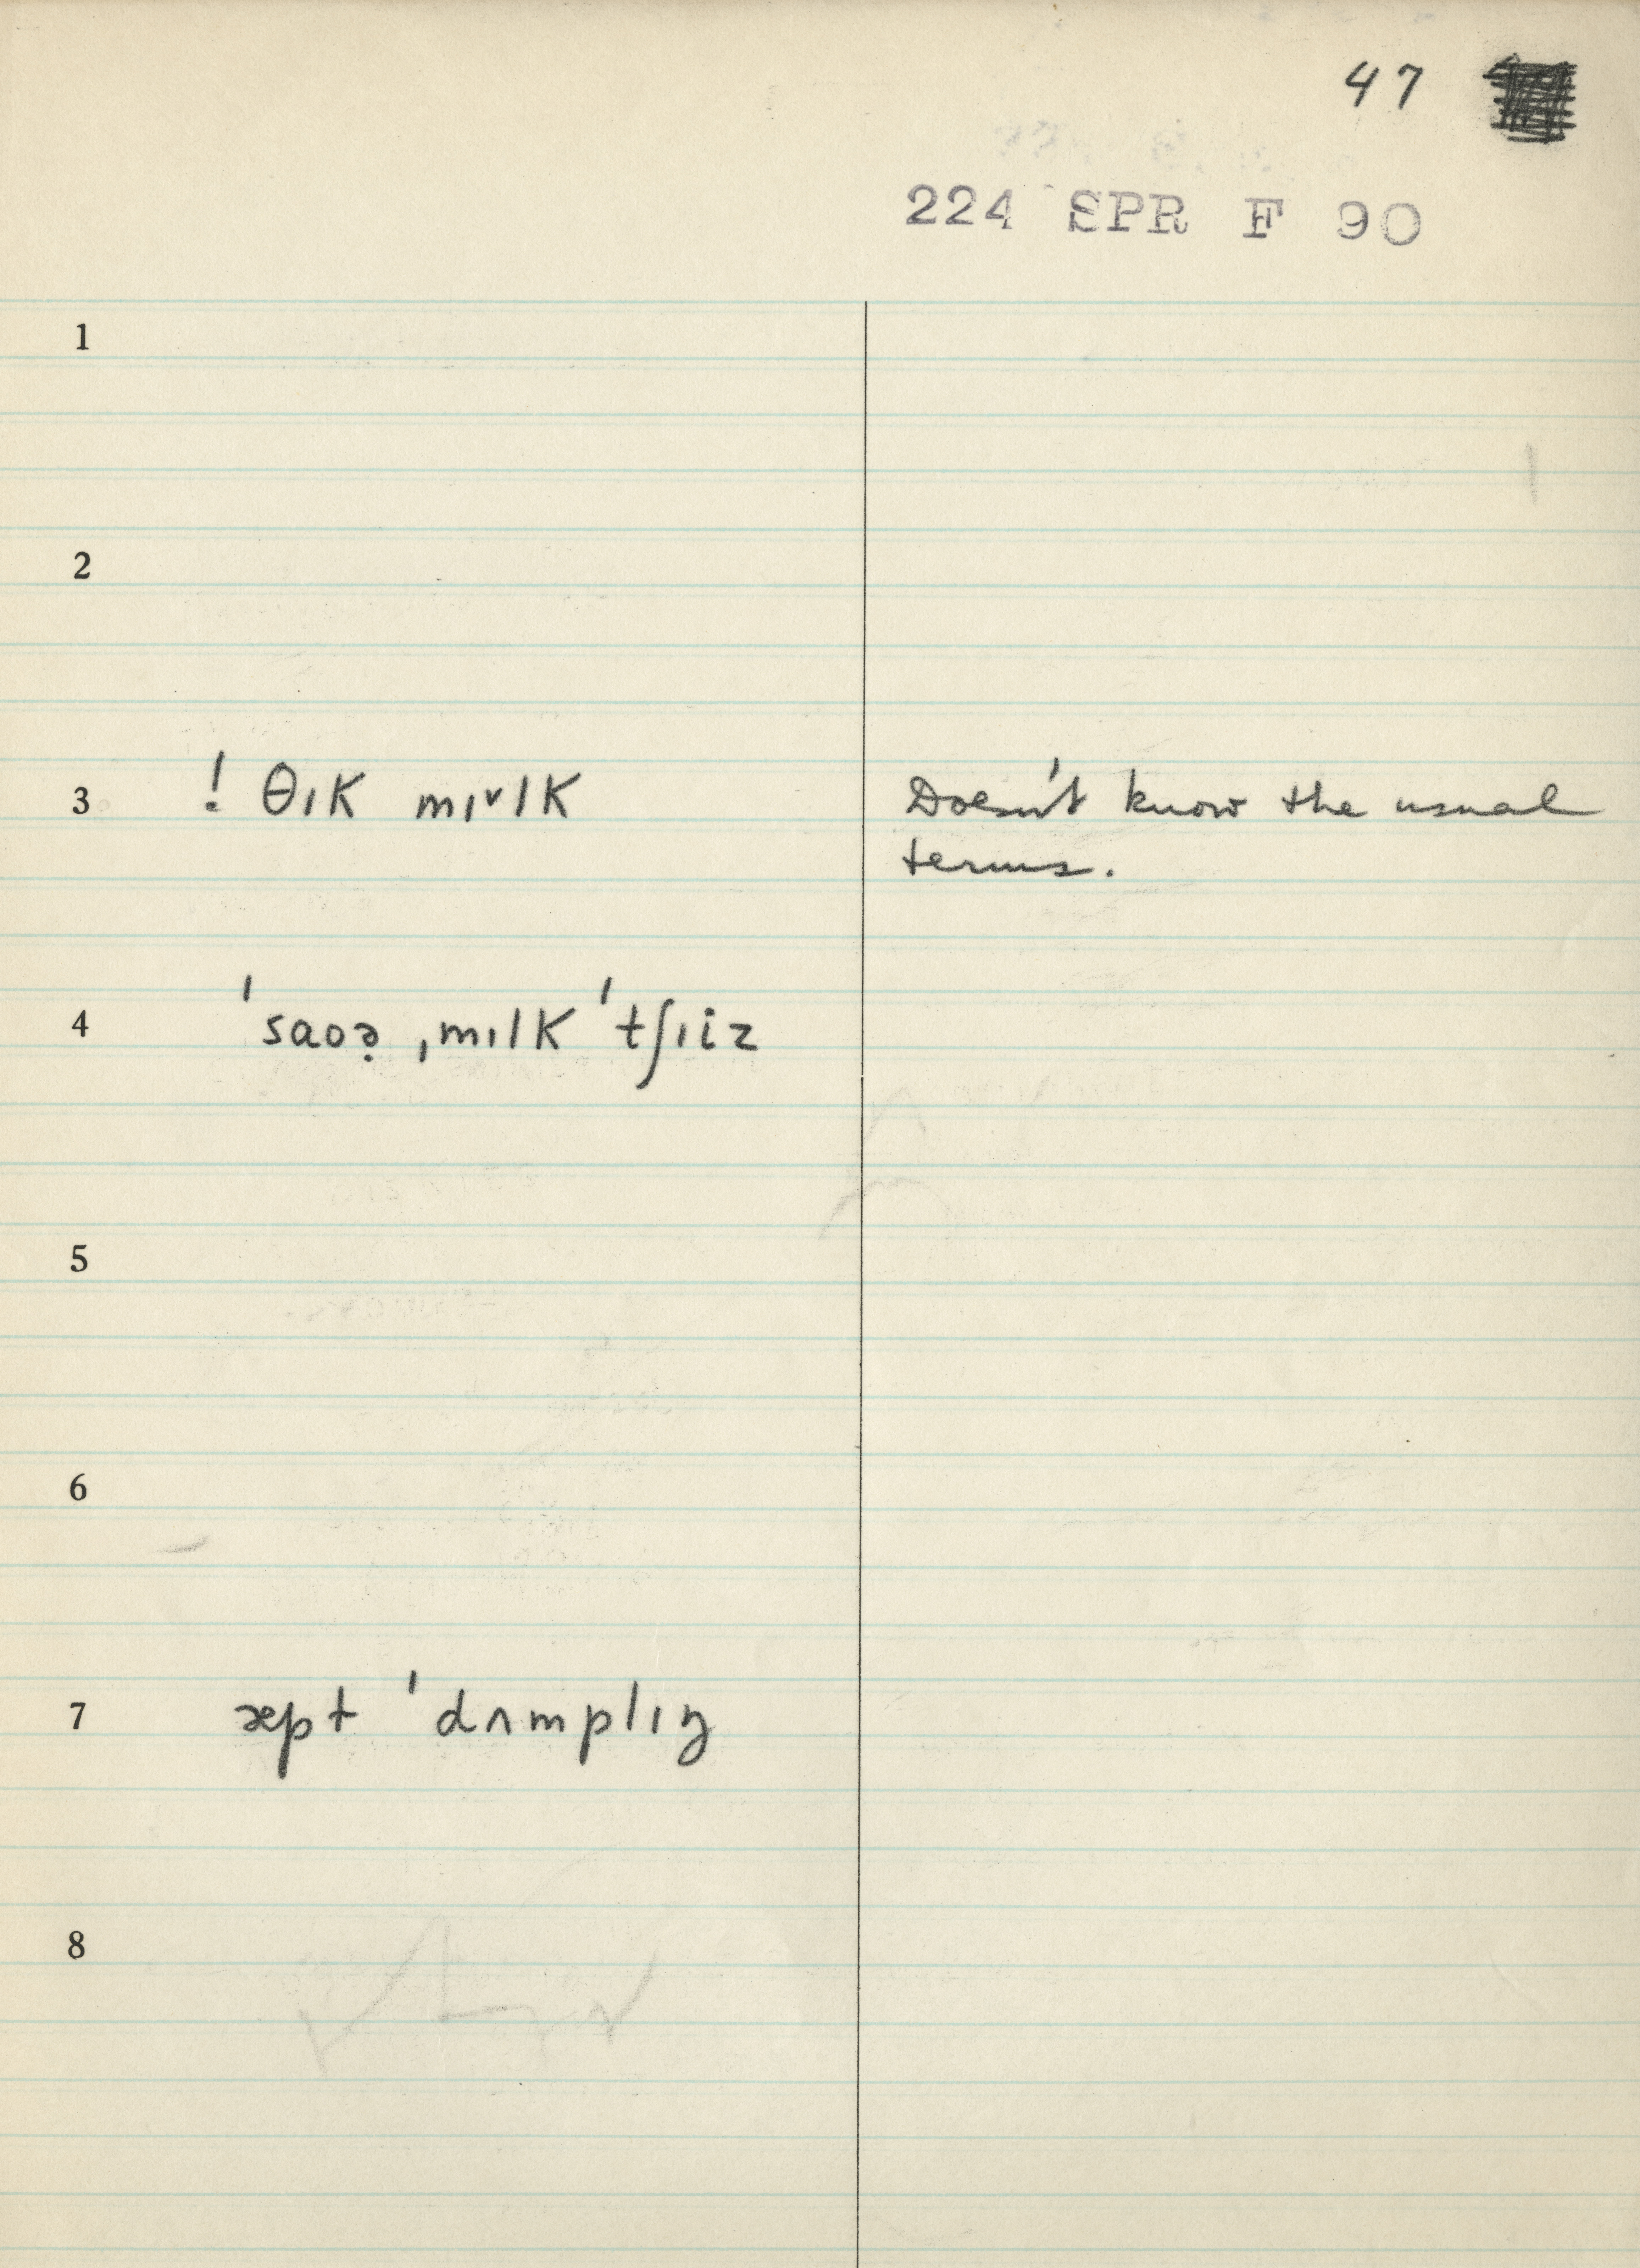 47
224 SPR F 90
1
2
3 ! θɪk mɪ˅lk Doesn't know the usual
terms.
4 ˈsaoə̣ ˌmɪlk ˈtʃɪiz
5
6
7 æpt ˈdʌmplɪŋ
8